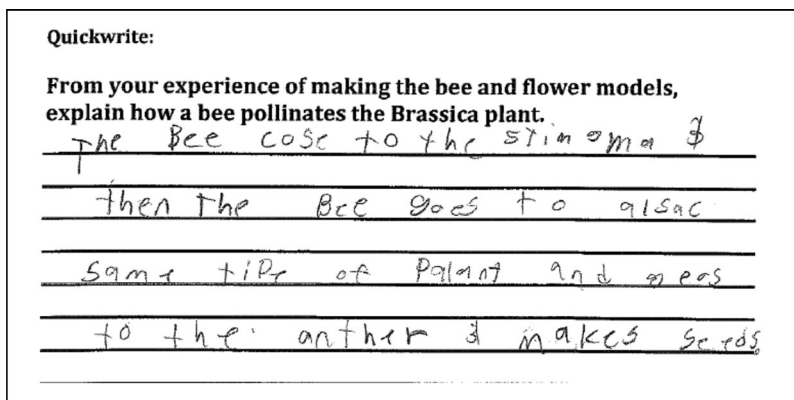 Quickwrite:
From your experience of making the bee and flower models,
explain how a bee pollinates the Brassica plant.
The Bee cose to the &
then The Bee goes to alsac
same tipe of Palant and
to the anther & makes seeds